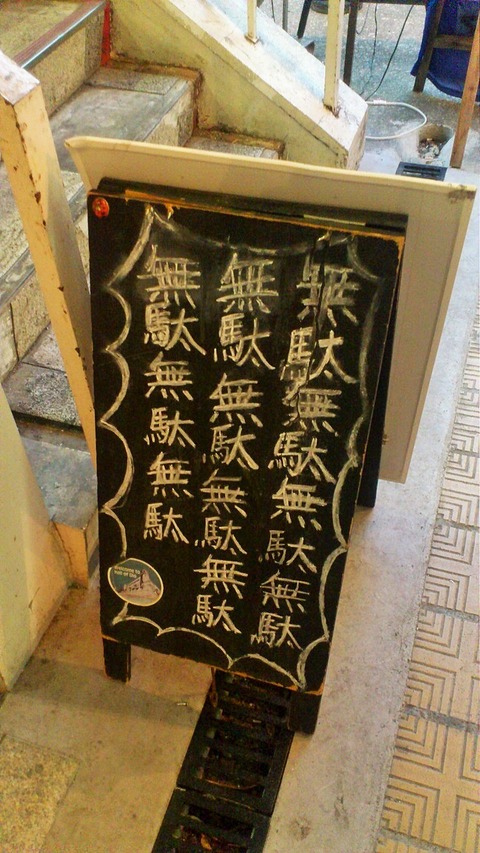 無駄無駄無駄無駄
無駄無駄無駄無駄
無駄無駄無駄